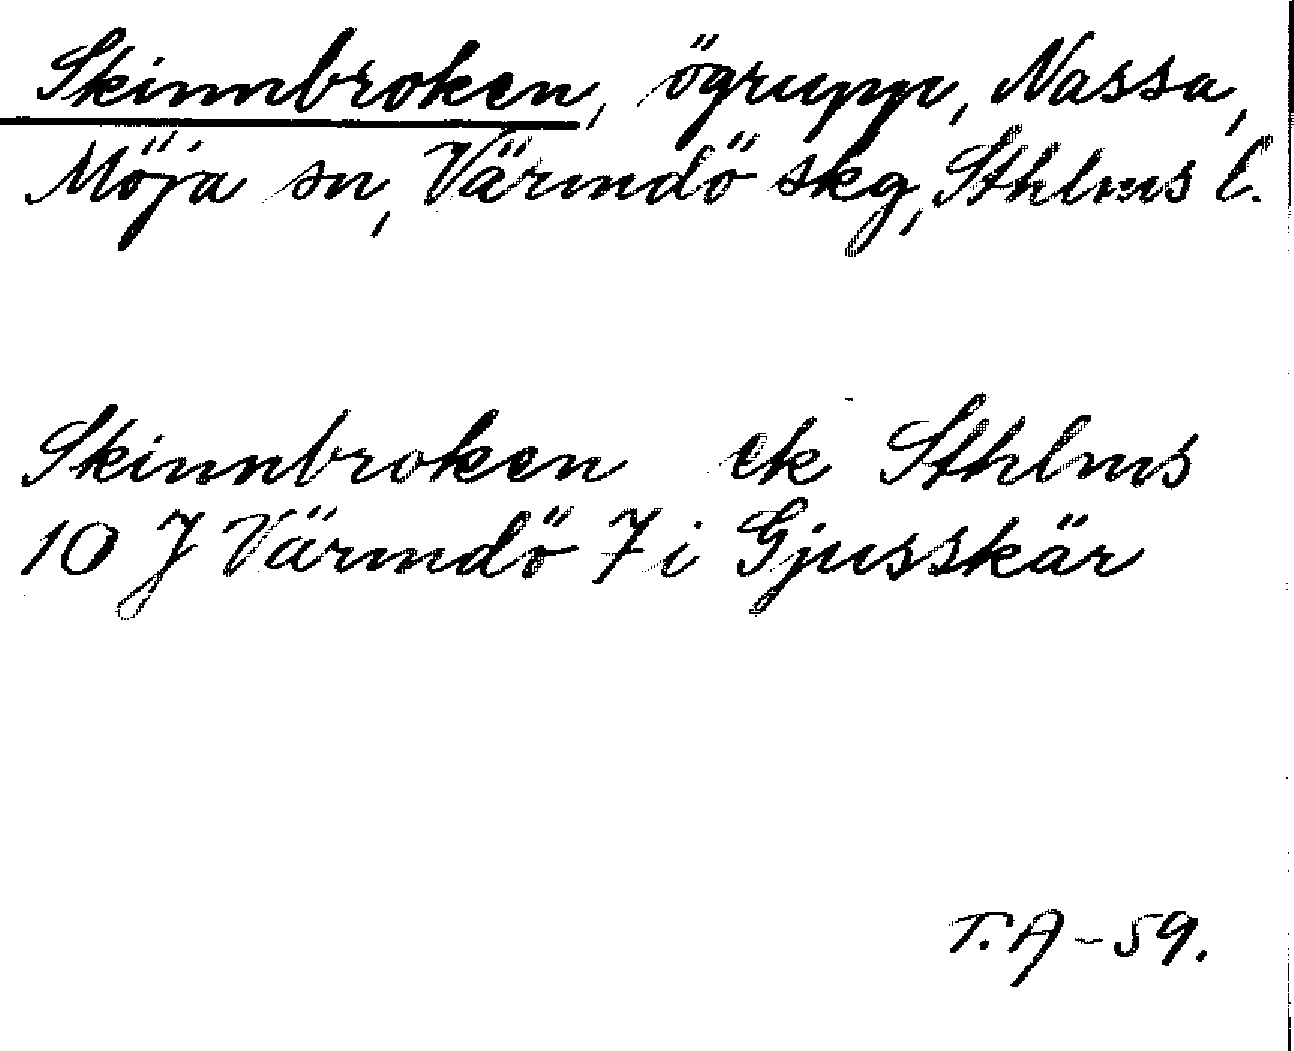 Skinnbroken, ögrupp, Nassa,
Möja sn, Värmdö skg, Sthlms l.
Skinnbroken ek Sthlms
10 J Värmdö 7 i Gjusskär
T. A - 59.